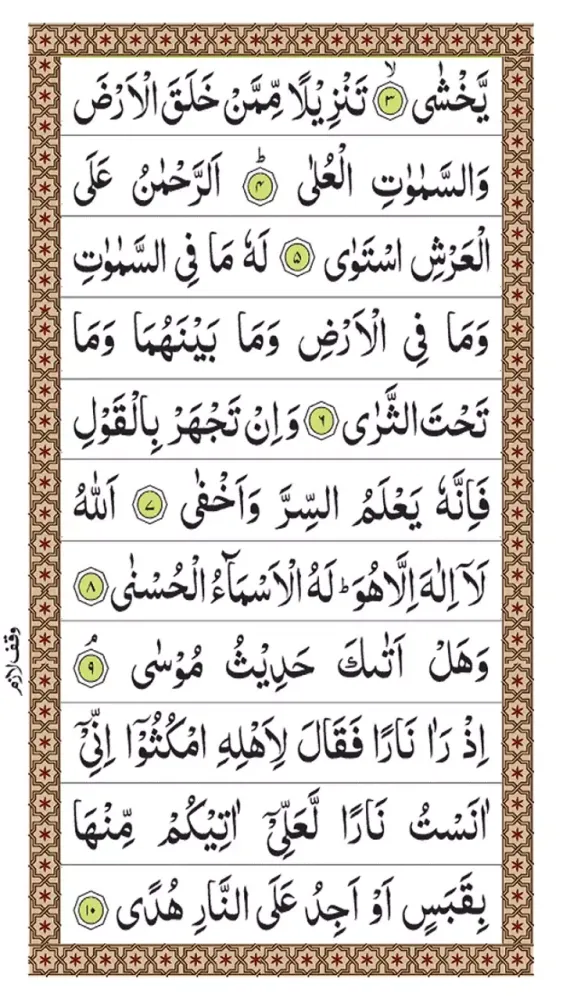 يَّخْشٰى ۙ﴿۳﴾ تَنْزِيْلًا مِّمَّنْ خَلَقَ الْاَرْضَ
وَالسَّمٰوٰتِ الْعُلٰى ؕ﴿۴﴾ اَلرَّحْمٰنُ عَلَى
الْعَرْشِ اسْتَوٰى ﴿۵﴾ لَهٗ مَا فِى السَّمٰوٰتِ
وَمَا فِى الْاَرْضِ وَمَا بَيْنَهُمَا وَمَا
تَحْتَ الثَّرٰى ﴿۶﴾ وَاِنْ تَجْهَرْ بِالْقَوْلِ
فَاِنَّهٗ يَعْلَمُ السِّرَّ وَاَخْفٰى ﴿۷﴾ اَللّٰهُ
لَاۤ اِلٰهَ اِلَّا هُوَ ؕ لَهُ الْاَسْمَآءُ الْحُسْنٰى ﴿۸﴾
وَهَلْ اَتٰٮكَ حَدِيْثُ مُوْسٰى ۘ﴿۹﴾
وقف لازم
اِذْ رَاٰ نَارًا فَقَالَ لِاَهْلِهِ امْكُثُوْۤا اِنِّىْۤ
اٰنَسْتُ نَارًا لَّعَلِّىْۤ اٰتِيْكُمْ مِّنْهَا
بِقَبَسٍ اَوْ اَجِدُ عَلَى النَّارِ هُدًى ﴿۱۰﴾